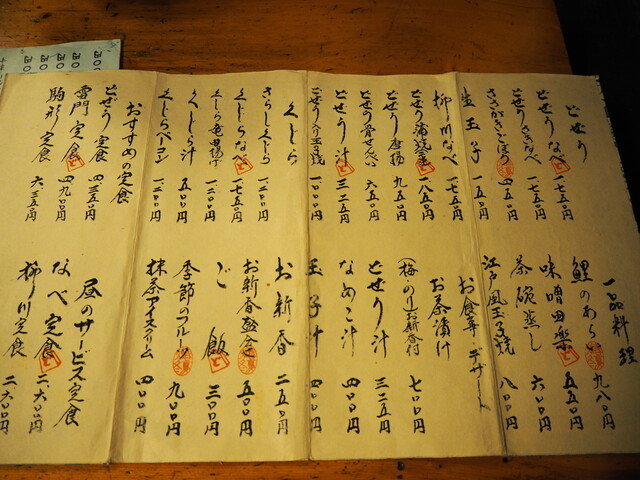 どぜう
どぜうなべ 一、七五〇円
どぜうさきなべ 一、七五〇円
ささがきごぼう 四五〇円
生玉子 一五〇円
柳川なべ 一、七五〇円
どぜう蒲焼 一、八五〇円
どぜう唐揚 九五〇円
どぜう骨せんべい 六五〇円
どぜう汁 三二五円
一、〇〇〇円
くじら
さらしくじら 一、二〇〇円
くじらなべ 一、七五〇円
くじら竜田揚げ 一、二〇〇円
くじら汁 五〇〇円
くじらベーコン 一、二〇〇円
おすすめの定食
どぜう定食 四、三五〇円
雷門定食 四、九〇〇円
駒形定食 六、三五〇円
一品料理
鯉のあらい 九八〇円
味噌田楽 五五〇円
茶碗蒸し 六〇〇円
江戸風玉子焼 八〇〇円
お食事・デザート
お茶漬け
(梅・のり)お新香付 七〇〇円
どぜう汁 三二五円
なめこ汁 四〇〇円
玉子汁 四〇〇円
お新香 二五〇円
お新香盛合 五〇〇円
ご飯 三〇〇円
季節のフルーツ 九〇〇円
抹茶アイスクリーム 四〇〇円
昼のサービス定食
なべ定食 二、六〇〇円
柳川定食 二、六〇〇円